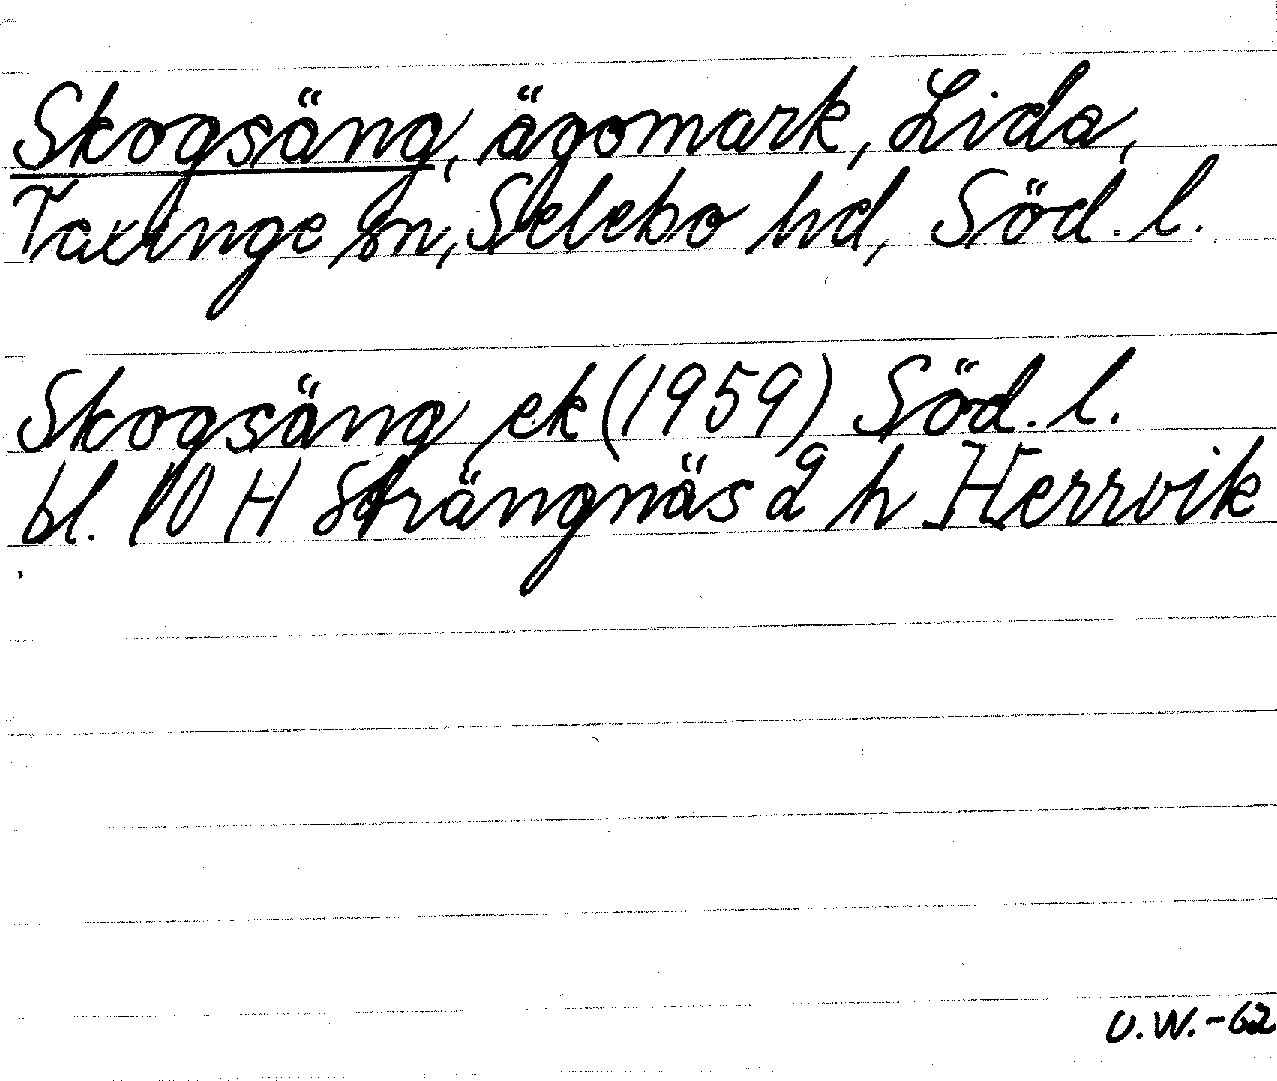 Skogsäng, ägomark, Lida,
Taxinge sn, Selebo hd, Söd. l.
Skogsäng ek (1959) Söd. l.
bl. 10 H Strängnäs 2 h Herrvik
U.W.-62